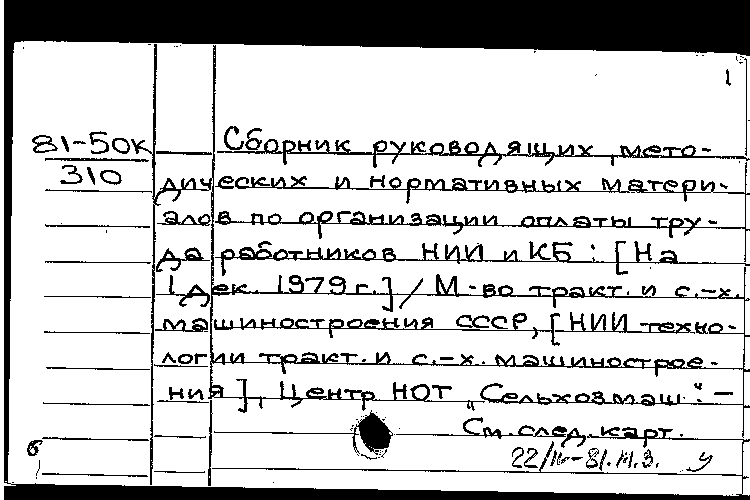 1
81-50к
310
Сборник руководящих, мето-
дических и нормативных матери-
алов по организации оплаты тру-
да работников НИИ и КБ : [На
1 дек. 1979 г.] / М-во тракт. и с.-х.
машиностроения СССР, [НИИ техно-
логии тракт. и с.-х. машинострое-
ния], Центр НОТ „Сельхозмаш". -
См. след. карт.
б
22/IV-81. М.З. у